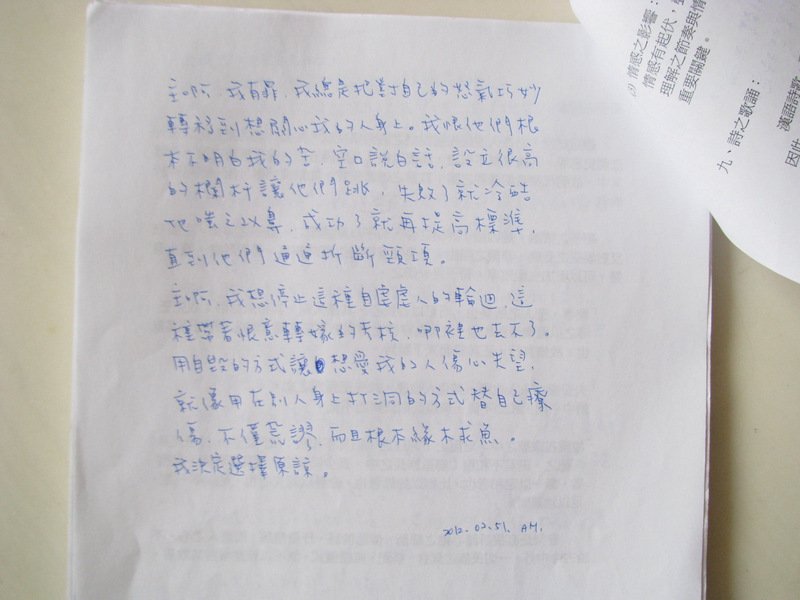 主啊，我有罪，我總是把對自己的怒氣巧妙
轉移到想關心我的人身上。我恨他們根
本不明白我的苦，空口說白話，設立很高
的欄杆讓他們跳，失敗了就冷酷
地嗤之以鼻，成功了就再提高標準，
直到他們通通折斷頸項。
主啊，我想停止這種自虐虐人的輪迴，這
種帶著恨意轉嫁的考核，哪裡也去不了。
用自毀的方式讓想愛我的人傷心失望，
就像用在別人身上打洞的方式替自己療
傷，不僅荒謬，而且根本緣木求魚。
我決定選擇原諒。
2012.02. AM.
情感之影響：
情感有起伏，
理解之節奏與情
重要關鍵。
九、詩之歌誦：
漢語詩歌
因此